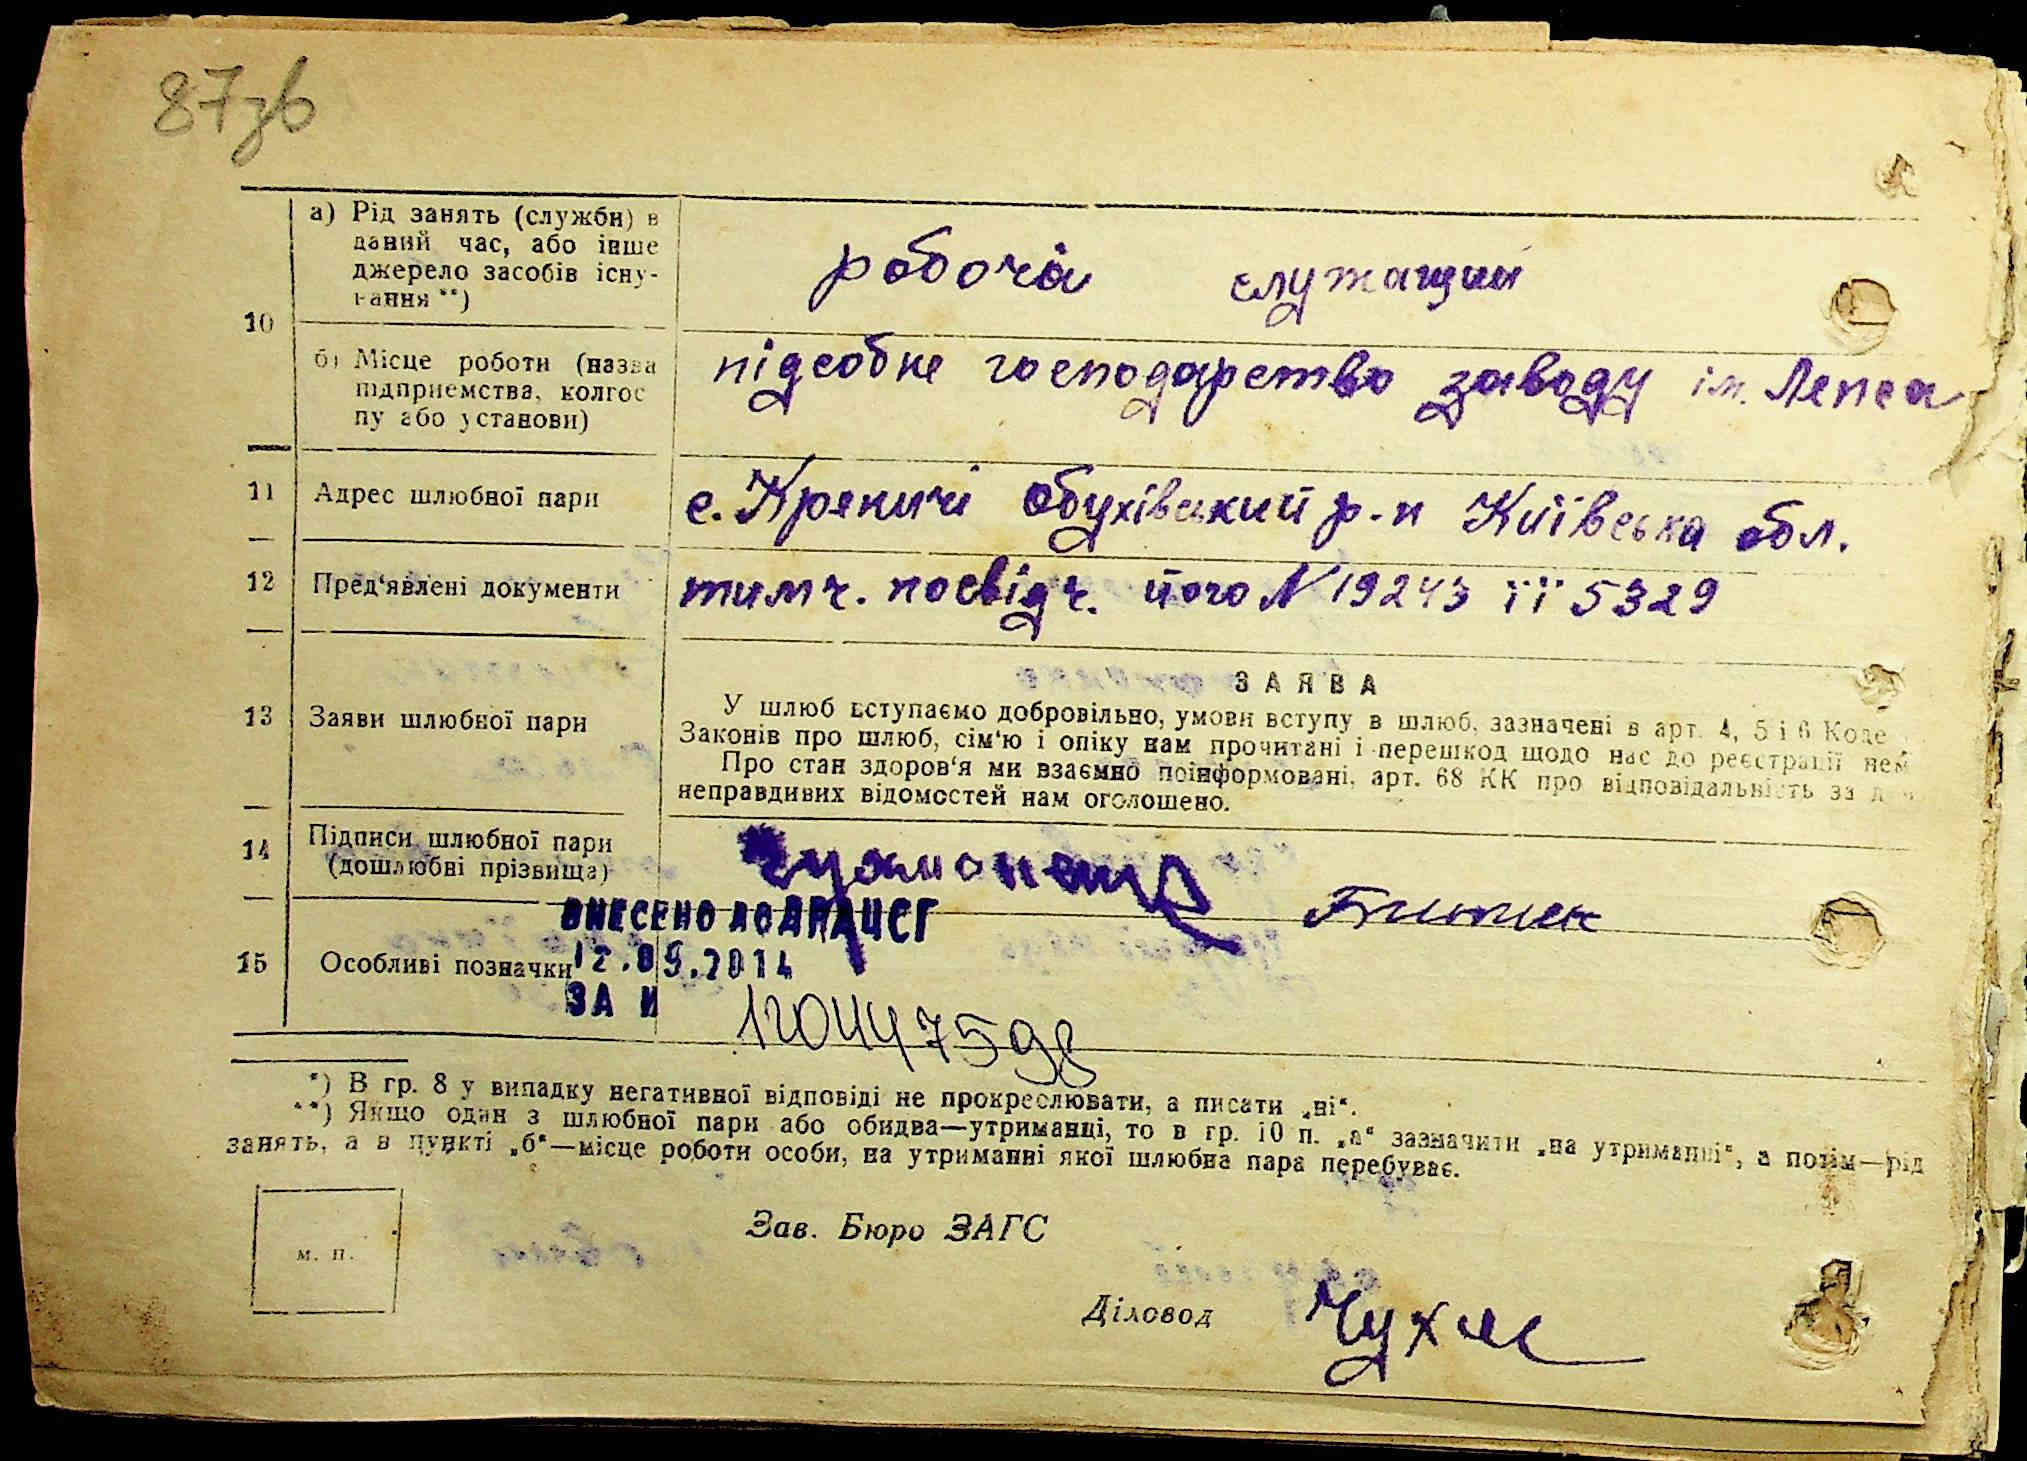 87зв
а) Рід занять (служби) в
даний час, або інше
джерело засобів існу-
вання **)
робоча служащий
10
б) Місце роботи (назва
підприємства, колгос
пу або установи)
підсобне господарство заводу ім. Лепсе
11 Адрес шлюбної пари
с. Креничі Обухівський р-н Київська обл.
12 Пред‘явлені документи
тимч. посвідч. його N 19243 її 5329
ЗАЯВА
13 Заяви шлюбної пари
У шлюб вступаємо добровільно, умови вступу в шлюб, зазначені в арт. 4, 5 і 6 Коде
Законів про шлюб, сім‘ю і опіку нам прочитані і перешкод щодо нас до реєстрації нем
Про стан здоров‘я ми взаємно поінформовані, арт. 68 КК про відповідальність за
неправдивих відомостей нам оголошено.
14 Підписи шлюбної пари
(дошлюбні прізвища)
ВНЕСЕНО ДО ДРАЦСГ
15 Особливі позначки
12.09.2014
ЗА N
120447598
*) В гр. 8 у випадку негативної відповіді не прокреслювати, а писати „ні“.
**) Якщо один з шлюбної пари або обидва—утриманці, то в гр. 10 п. „а“ зазначити „на утриманні“, а потім—рід
занять, а в пункті „б“—місце роботи особи, на утриманні якої шлюбна пара перебуває.
м. п.
Зав. Бюро ЗАГС
Діловод Чухм